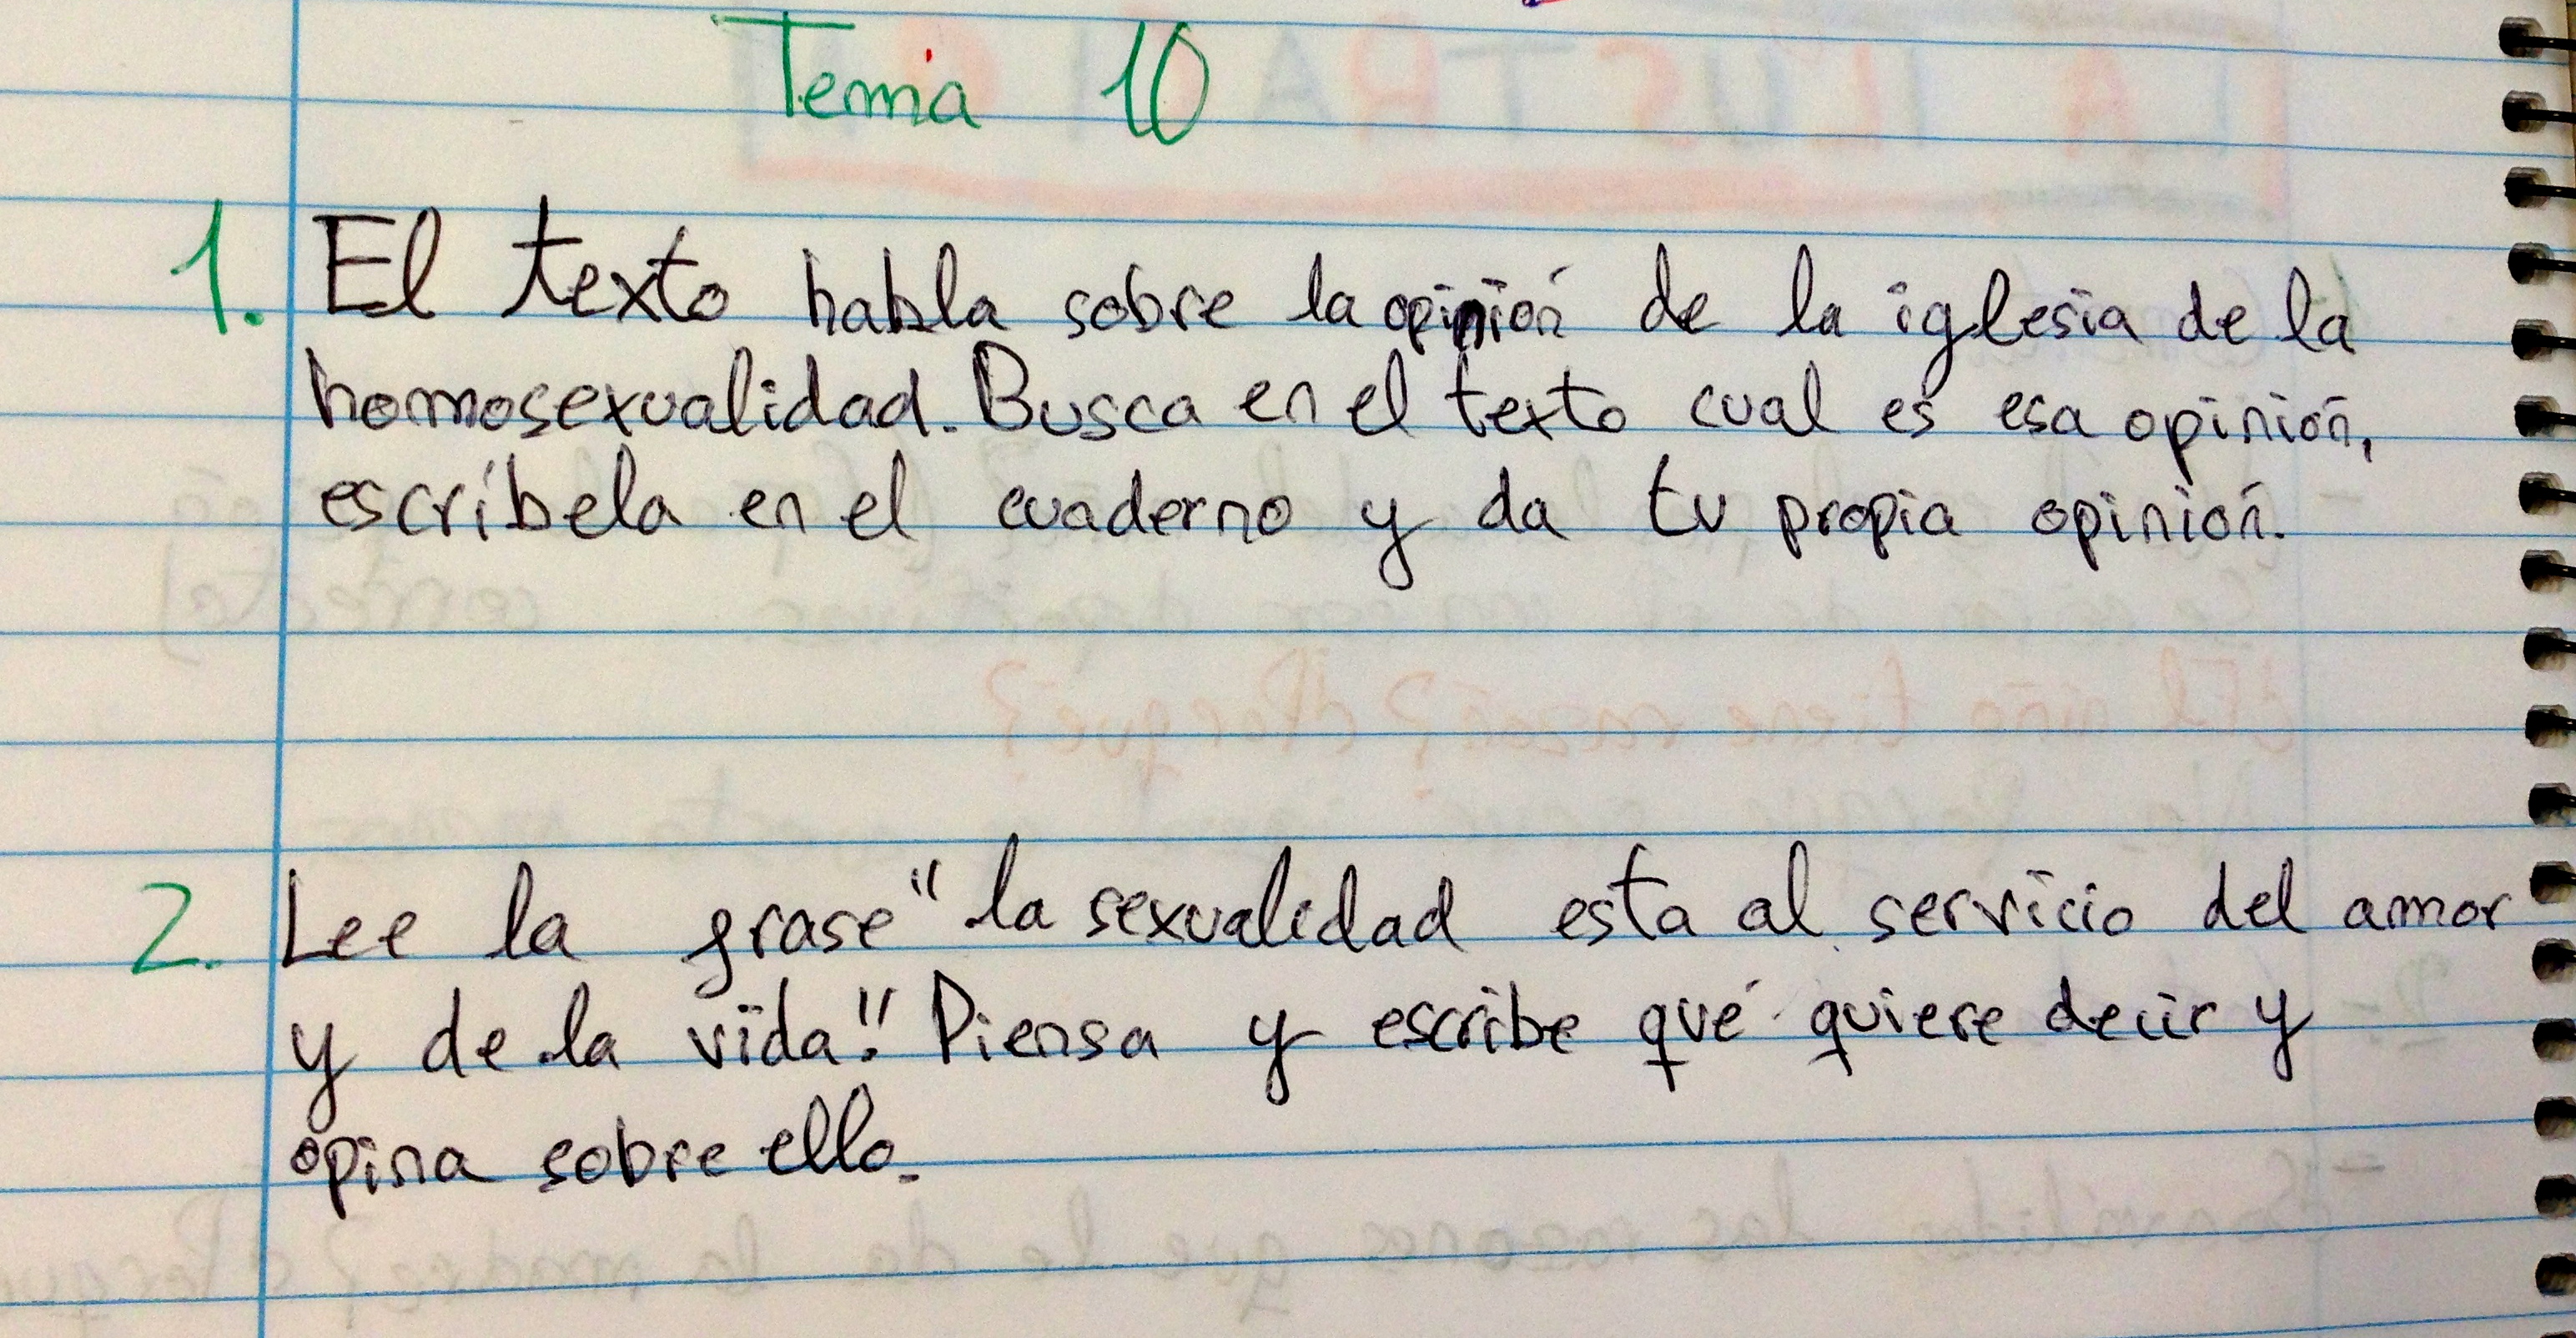 Tema 10
1. El texto habla sobre la opinión de la iglesia de la
homosexualidad. Busca en el texto cual es esa opinión,
escríbela en el cuaderno y da tu propia opinión.
2. Lee la frase "la sexualidad esta al servicio del amor
y de la vida." Piensa y escribe qué quiere decir y
opina sobre ello.